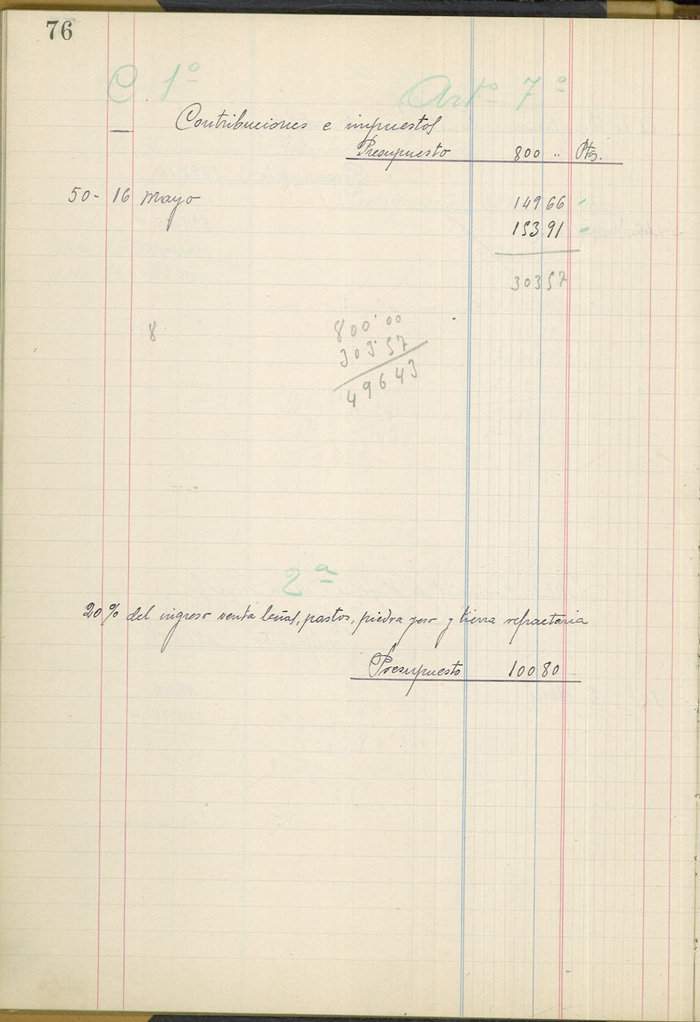 76
C 1º Artº 7º
Contribuciones e impuestos
Presupuesto 800 " Pts.
50 - 16 Mayo 149 66
153 91
303 57
8
800'00
303'57
496 43
2ª
20% del ingreso venta leñas, pastos, piedra yeso y tierra refractaria
Presupuesto 100 80